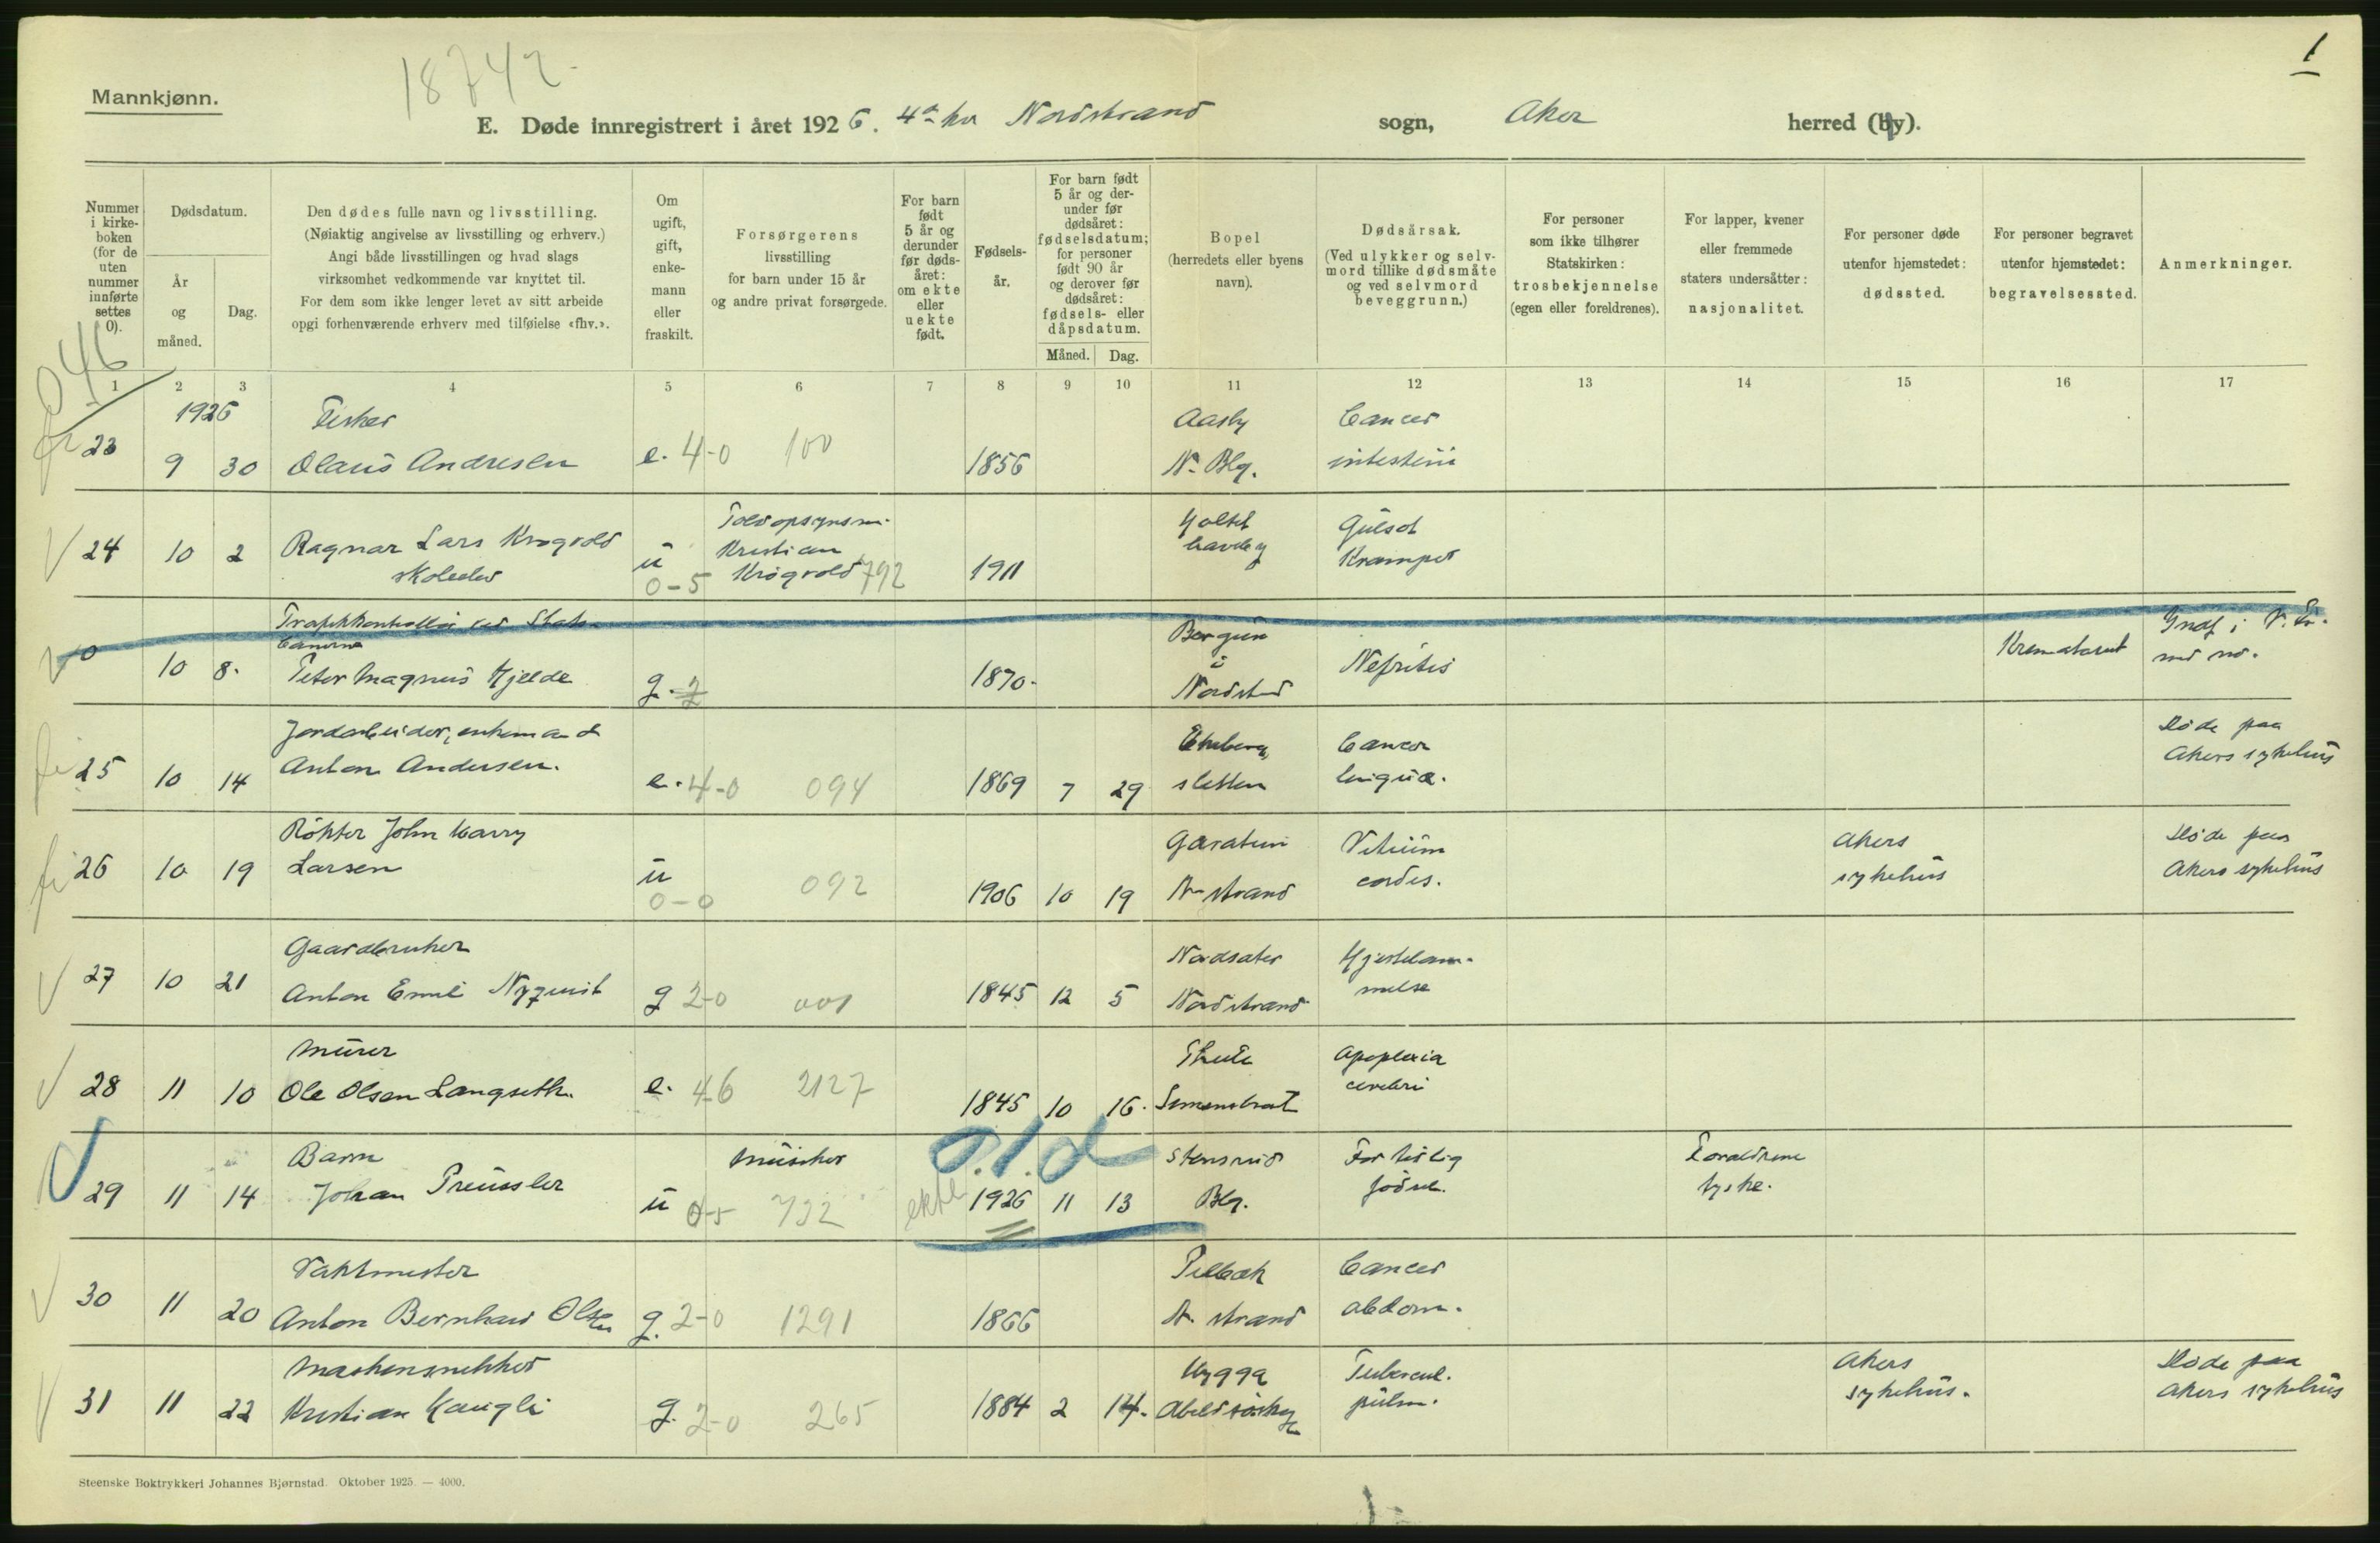 1
18742
Mannkjønn.
E. Døde innregistrert i året 1926. 4a kv Nordstrand sogn, Aker herred (by).
Nummer i kirkeboken (for de uten nummer innførte settes 0).
Dødsdatum.
År og måned.
Dag.
Den dødes fulle navn og livsstilling.
(Nøiaktig angivelse av livsstilling og erhverv.)
Angi både livsstillingen og hvad slags
virksomhet vedkommende var knyttet til.
For dem som ikke lenger levet av sitt arbeide
opgi forhenværende erhverv med tilføielse «fhv.».
Om ugift, gift, enkemann eller fraskilt.
Forsørgerens
livsstilling
for barn under 15 år
og andre privat forsørgede.
For barn født 5 år og derunder før dødsåret: om ekte eller uekte født.
Fødselsår.
For barn født 5 år og derunder før dødsåret: fødselsdatum; for personer født 90 år og derover før dødsåret: fødsels- eller dåpsdatum.
Måned. Dag.
Bopel
(herredets eller byens
navn).
Dødsårsak.
(Ved ulykker og selvmord tillike dødsmåte og ved selvmord beveggrunn.)
For personer
som ikke tilhører
Statskirken:
trosbekjennelse
(egen eller foreldrenes).
For lapper, kvener
eller fremmede
staters undersåtter:
nasjonalitet.
For personer døde
utenfor hjemstedet:
dødssted.
For personer begravet
utenfor hjemstedet:
begravelsessted.
Anmerkninger.
1 2 3 4 5 6 7 8 9 10 11 12 13 14 15 16 17
1926 Fisker Aasly Cancer
23 9 30 Olaus Andresen e. 4-0 100 1856 N. Blg. intestini
Toldopsynsm.
24 10 2 Ragnar Lars Krogvold u Kristian 1911 Gulsot
skoleelev 0-5 Krogvold 792 Kramper
Trafikkontrollør ved Stats-
banerne
0 10 8. Peter Magnus Hjelde g. 2 1870. Bergun i Nordstrand Nefritis Krematoriet
Jordarbeider, enkemand Døde paa
25 10 14 Anton Andersen. e. 4-0 094 1869 7 29 Ekeberg sletten Cancer linguæ. Akers sykehus
Røkter John Harry Vitium Akers Døde paa
26 10 19 Larsen u 0-0 092 1906 10 19 N. strand cordis. sykehus Akers sykehus
Gaardbruker Nordsæter Hjertelam-
27 10 21 Anton Emil Nyquist g 2-0 001 1845 12 5 Nordstrand melse
Murer Apoplexia
28 11 10 Ole Olsen Langseth. e. 4-6 2127 1845 10 16. Simensbraat cerebri
Barn Musiker Stensrud For tidlig Foreldrene
29 11 14 Johan Preussler u 0-5 732 ekte 1926 11 13 Blg. fødsel. tyske.
Vaktmester Pilbæk Cancer
30 11 20 Anton Bernhard Olsen g. 2-0 1291 1866 N. strand abdom.
Maskinsnekker Hygga Tubercul. Akers Døde paa
31 11 22 Kristian Haugli g. 2-0 265 1884 2 14. pulm. sykehus. Akers sykehus
Steenske Boktrykkeri Johannes Bjørnstad. Oktober 1925. — 4000.